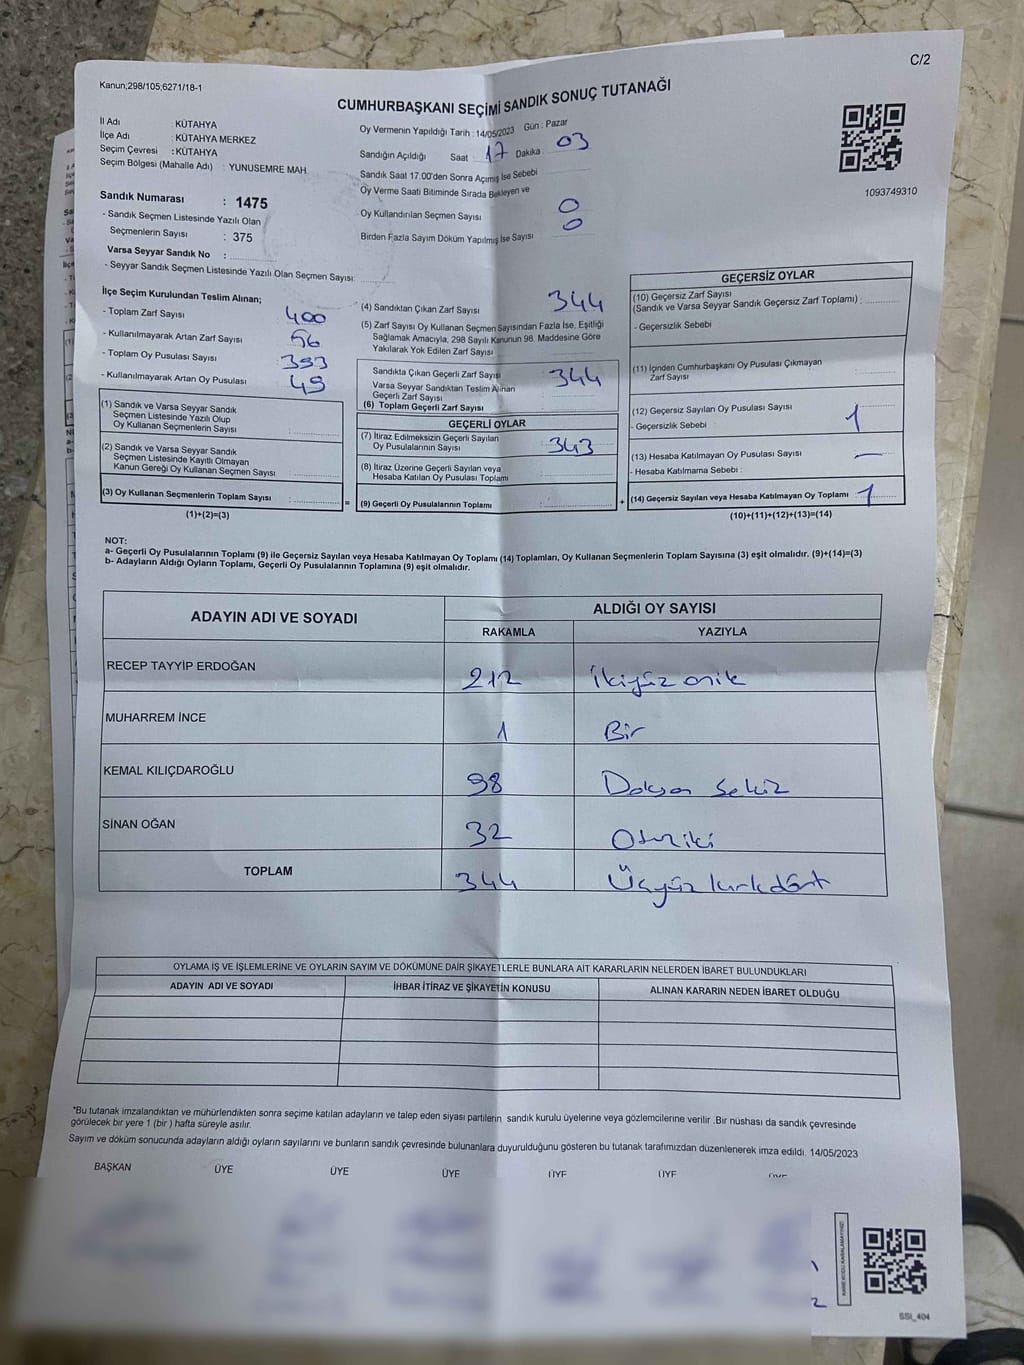 C/2
Kanun;298/105;6271/18-1
CUMHURBAŞKANI SEÇİMİ SANDIK SONUÇ TUTANAĞI
İl Adı : KÜTAHYA
İlçe Adı : KÜTAHYA MERKEZ
Seçim Çevresi : KÜTAHYA
Seçim Bölgesi (Mahalle Adı) : YUNUSEMRE MAH.
Sandık Numarası : 1475
- Sandık Seçmen Listesinde Yazılı Olan
Seçmenlerin Sayısı : 375
Varsa Seyyar Sandık No :
- Seyyar Sandık Seçmen Listesinde Yazılı Olan Seçmen Sayısı:
Oy Vermenin Yapıldığı Tarih : 14/05/2023 Gün : Pazar
Sandığın Açıldığı Saat : 17 Dakika : 03
Sandık Saat 17.00'den Sonra Açımış İse Sebebi
Oy Verme Saati Bitiminde Sırada Bekleyen ve
Oy Kullandırılan Seçmen Sayısı 0
Birden Fazla Sayım Döküm Yapılmış İse Sayısı 0
1093749310
İlçe Seçim Kurulundan Teslim Alınan;
- Toplam Zarf Sayısı 400
- Kullanılmayarak Artan Zarf Sayısı 56
- Toplam Oy Pusulası Sayısı 393
- Kullanılmayarak Artan Oy Pusulası 49
(1) Sandık ve Varsa Seyyar Sandık
Seçmen Listesinde Yazılı Olup
Oy Kullanan Seçmenlerin Sayısı :
(2) Sandık ve Varsa Seyyar Sandık
Seçmen Listesinde Kayıtlı Olmayan
Kanun Gereği Oy Kullanan Seçmen Sayısı :
(3) Oy Kullanan Seçmenlerin Toplam Sayısı : =
(1)+(2)=(3)
(4) Sandıktan Çıkan Zarf Sayısı 344
(5) Zarf Sayısı Oy Kullanan Seçmen Sayısından Fazla İse, Eşitliği
Sağlamak Amacıyla, 298 Sayılı Kanunun 98. Maddesine Göre
Yakılarak Yok Edilen Zarf Sayısı
Sandıkta Çıkan Geçerli Zarf Sayısı 344
Varsa Seyyar Sandıktan Teslim Alınan
Geçerli Zarf Sayısı
(6) Toplam Geçerli Zarf Sayısı
GEÇERLİ OYLAR
(7) İtiraz Edilmeksizin Geçerli Sayılan
Oy Pusulalarının Sayısı 343
(8) İtiraz Üzerine Geçerli Sayılan veya
Hesaba Katılan Oy Pusulası Toplamı
(9) Geçerli Oy Pusulalarının Toplamı +
GEÇERSİZ OYLAR
(10) Geçersiz Zarf Sayısı
(Sandık ve Varsa Seyyar Sandık Geçersiz Zarf Toplamı) :
- Geçersizlik Sebebi :
(11) İçinden Cumhurbaşkanı Oy Pusulası Çıkmayan
Zarf Sayısı :
(12) Geçersiz Sayılan Oy Pusulası Sayısı : 1
- Geçersizlik Sebebi :
(13) Hesaba Katılmayan Oy Pusulası Sayısı : —
- Hesaba Katılmama Sebebi :
(14) Geçersiz Sayılan veya Hesaba Katılmayan Oy Toplamı : 1
(10)+(11)+(12)+(13)=(14)
NOT:
a- Geçerli Oy Pusulalarının Toplamı (9) ile Geçersiz Sayılan veya Hesaba Katılmayan Oy Toplamı (14) Toplamları, Oy Kullanan Seçmenlerin Toplam Sayısına (3) eşit olmalıdır. (9)+(14)=(3)
b- Adayların Aldığı Oyların Toplamı, Geçerli Oy Pusulalarının Toplamına (9) eşit olmalıdır.
ADAYIN ADI VE SOYADI ALDIĞI OY SAYISI
RAKAMLA YAZIYLA
RECEP TAYYİP ERDOĞAN 212 İkiyüz oniki
MUHARREM İNCE 1 Bir
KEMAL KILIÇDAROĞLU 98 Doksan Sekiz
SİNAN OĞAN 32 Otuziki
TOPLAM 344 Üçyüz kırkdört
OYLAMA İŞ VE İŞLEMLERİNE VE OYLARIN SAYIM VE DÖKÜMÜNE DAİR ŞİKAYETLERLE BUNLARA AİT KARARLARIN NELERDEN İBARET BULUNDUKLARI
ADAYIN ADI VE SOYADI İHBAR İTİRAZ VE ŞİKAYETİN KONUSU ALINAN KARARIN NEDEN İBARET OLDUĞU
*Bu tutanak imzalandıktan ve mühürlendikten sonra seçime katılan adayların ve talep eden siyasi partilerin sandık kurulu üyelerine veya gözlemcilerine verilir .Bir nüshası da sandık çevresinde
görülecek bir yere 1 (bir ) hafta süreyle asılır.
Sayım ve döküm sonucunda adayların aldığı oyların sayılarını ve bunların sandık çevresinde bulunanlara duyurulduğunu gösteren bu tutanak tarafımızdan düzenlenerek imza edildi. 14/05/2023
BAŞKAN ÜYE ÜYE ÜYE ÜYE ÜYE ÜYE
SSI_404